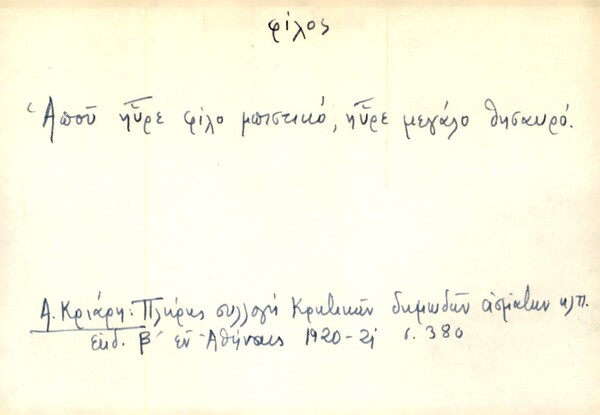 φίλος
Ἁποῦ ηὗρε φίλο μπιστικό, ηὗρε μεγάλο θησαυρό.
Α. Κριάρη: Πλήρης συλλογή Κρητικῶν δημωδῶν ἀσμάτων κλπ.
ἐκδ. β΄ ἐν Ἀθήναις 1920-21 σ. 380